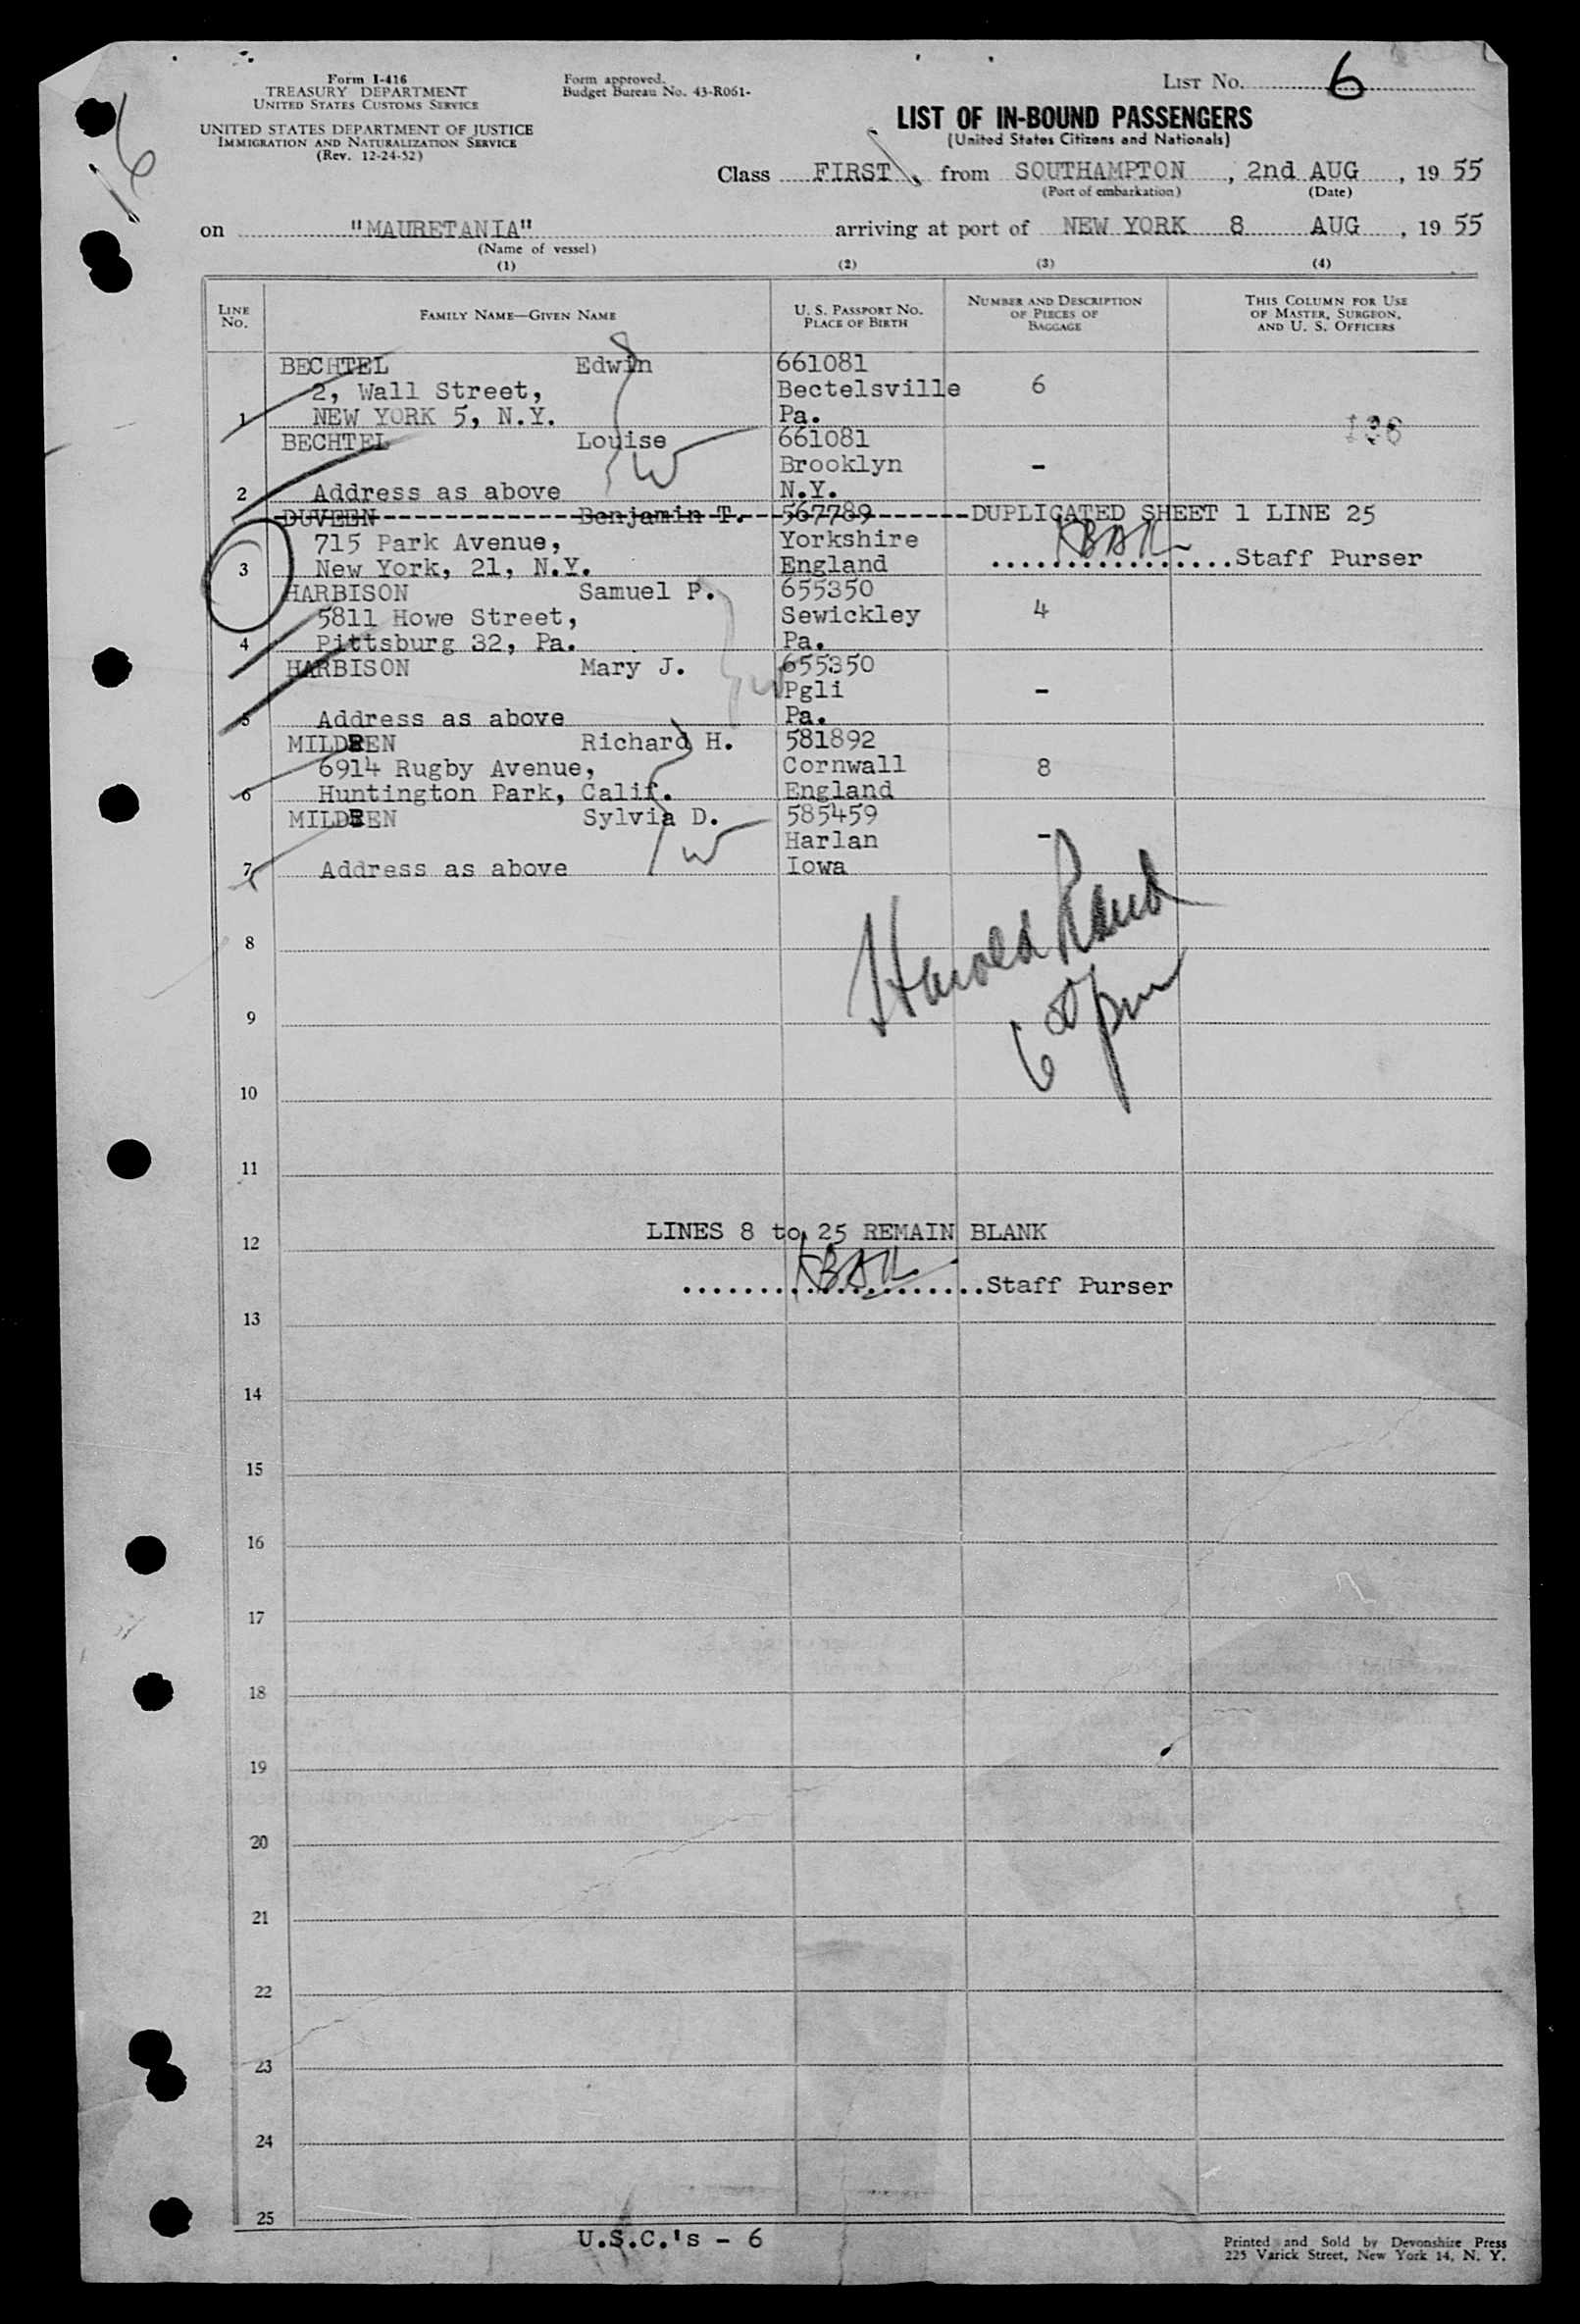 Form I-416
TREASURY DEPARTMENT
UNITED STATES CUSTOMS SERVICE
UNITED STATES DEPARTMENT OF JUSTICE
IMMIGRATION AND NATURALIZATION SERVICE
(Rev. 12-24-52)
Form approved.
Budget Bureau No. 43-R061-
LIST No. 6
LIST OF IN-BOUND PASSENGERS
(United States Citizens and Nationals)
Class FIRST from SOUTHAMPTON, 2nd AUG, 1955
(Port of embarkation) (Date)
on "MAURETANIA" arriving at port of NEW YORK 8 AUG, 1955
(Name of vessel)
(1) (2) (3) (4)
LINE No. FAMILY NAME—GIVEN NAME U. S. PASSPORT No. PLACE OF BIRTH NUMBER AND DESCRIPTION OF PIECES OF BAGGAGE THIS COLUMN FOR USE OF MASTER, SURGEON, AND U. S. OFFICERS
BECHTEL Edwin 661081
2, Wall Street, Bectelsville 6
1 NEW YORK 5, N.Y. Pa.
BECHTEL Louise 661081
Brooklyn -
2 Address as above N.Y.
DUVEEN Benjamin T. 567789 DUPLICATED SHEET 1 LINE 25
715 Park Avenue, Yorkshire
3 New York, 21, N.Y. England Staff Purser
HARBISON Samuel P. 655350
5811 Howe Street, Sewickley 4
4 Pittsburg 32, Pa. Pa.
HARBISON Mary J. 655350
Pgli -
5 Address as above Pa.
MILDREN Richard H. 581892
6914 Rugby Avenue, Cornwall 8
6 Huntington Park, Calif. England
MILDREN Sylvia D. 585459
Harlan -
7 Address as above Iowa
Harold Rand
8
9
6 00 pm
10
11
LINES 8 to 25 REMAIN BLANK
12
Staff Purser
13
14
15
16
17
18
19
20
21
22
23
24
25
U.S.C.'s - 6
Printed and Sold by Devonshire Press
225 Varick Street, New York 14, N. Y.